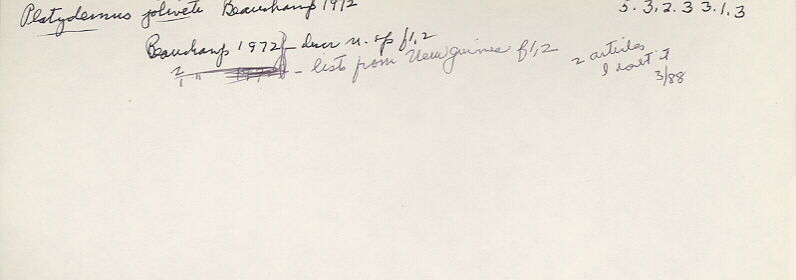 Platydemus joliveti Beauchamp 1972 5.3.2.3 3.1.3
Beauchamp 1972f - descr n. sp f1,2
2
1 " - lists from New Guinea f1,2
2 articles
I doubt it
3/88